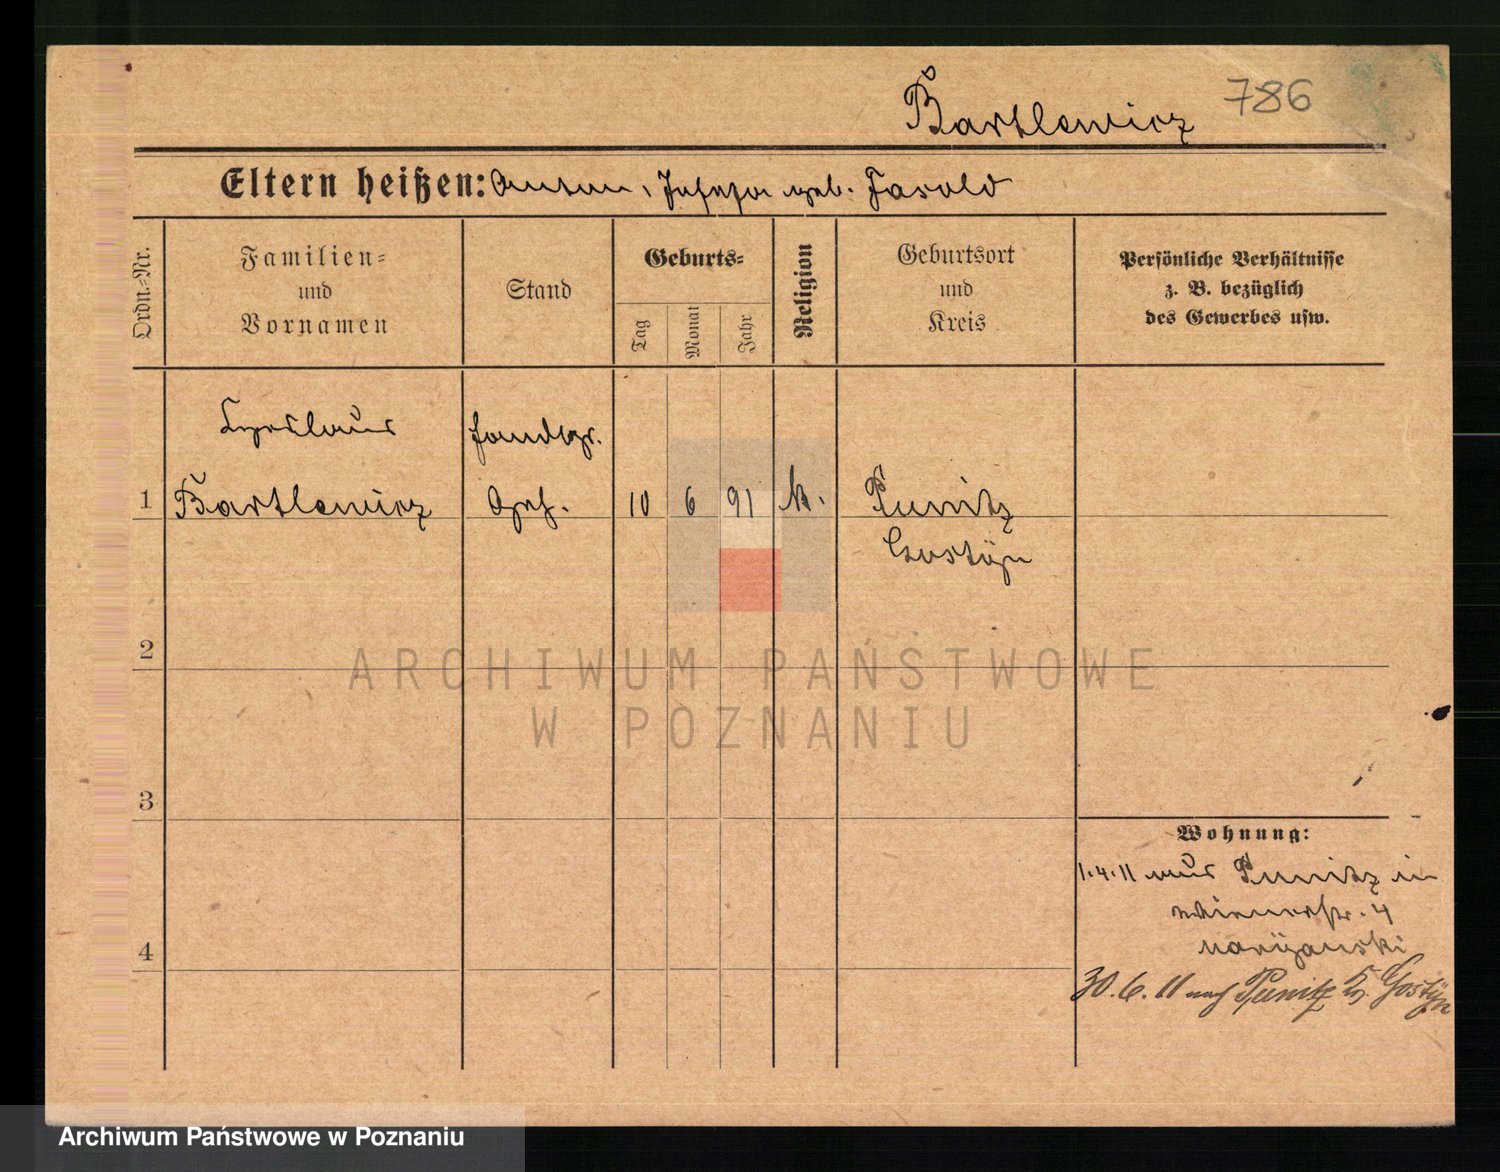 Bartlewicz 786
Eltern heißen: Anton, Josefa geb. Jasold
Ordn.-Nr.
Familien-
und
Vornamen
Stand
Geburts-
Tag
Monat
Jahr
Religion
Geburtsort
und
Kreis
Persönliche Verhältnisse
z. B. bezüglich
des Gewerbes usw.
Ceslaus
1 Bartlewicz
Handlgs.
Geh.
10 6 91 k. Punitz
Gostyn
2
3
4
Wohnung:
1.4.11 aus Punitz in
Wienerstr. 4
30.6.11 nach Punitz Kr. Gostyn
ARCHIWUM PAŃSTWOWE
W POZNANIU
Archiwum Państwowe w Poznaniu